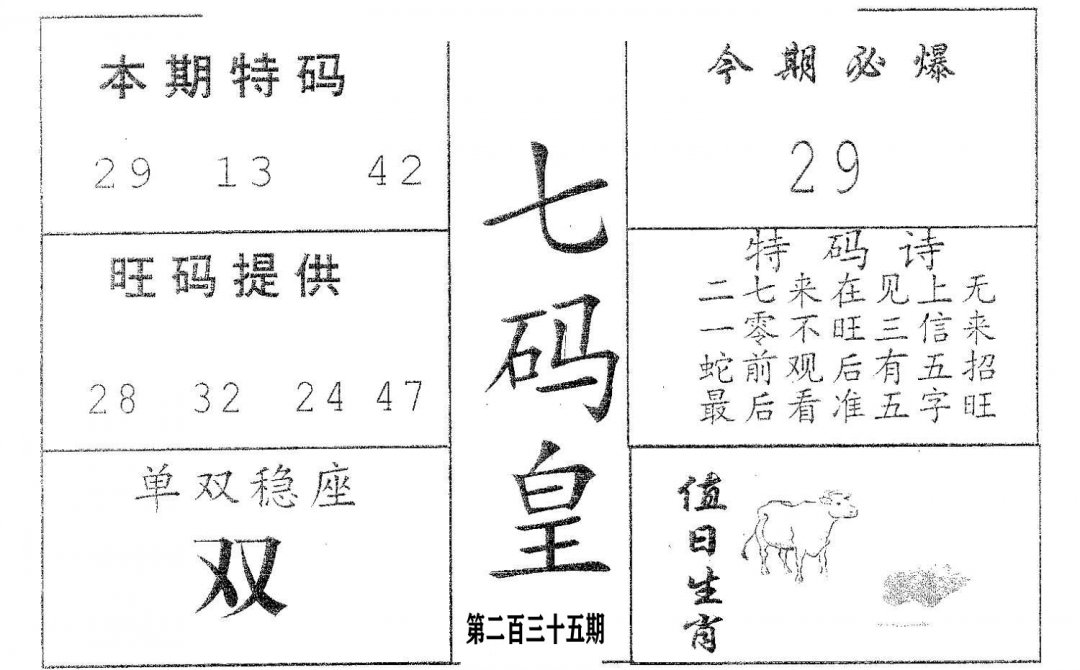 本期特码
29 13 42
旺码提供
28 32 24 47
单双稳座
双
七码皇
第二百三十五期
今期必爆
29
特码诗
二七来在见上无
一零不旺三信来
蛇前观后有五招
最后看准五字旺
值日生肖